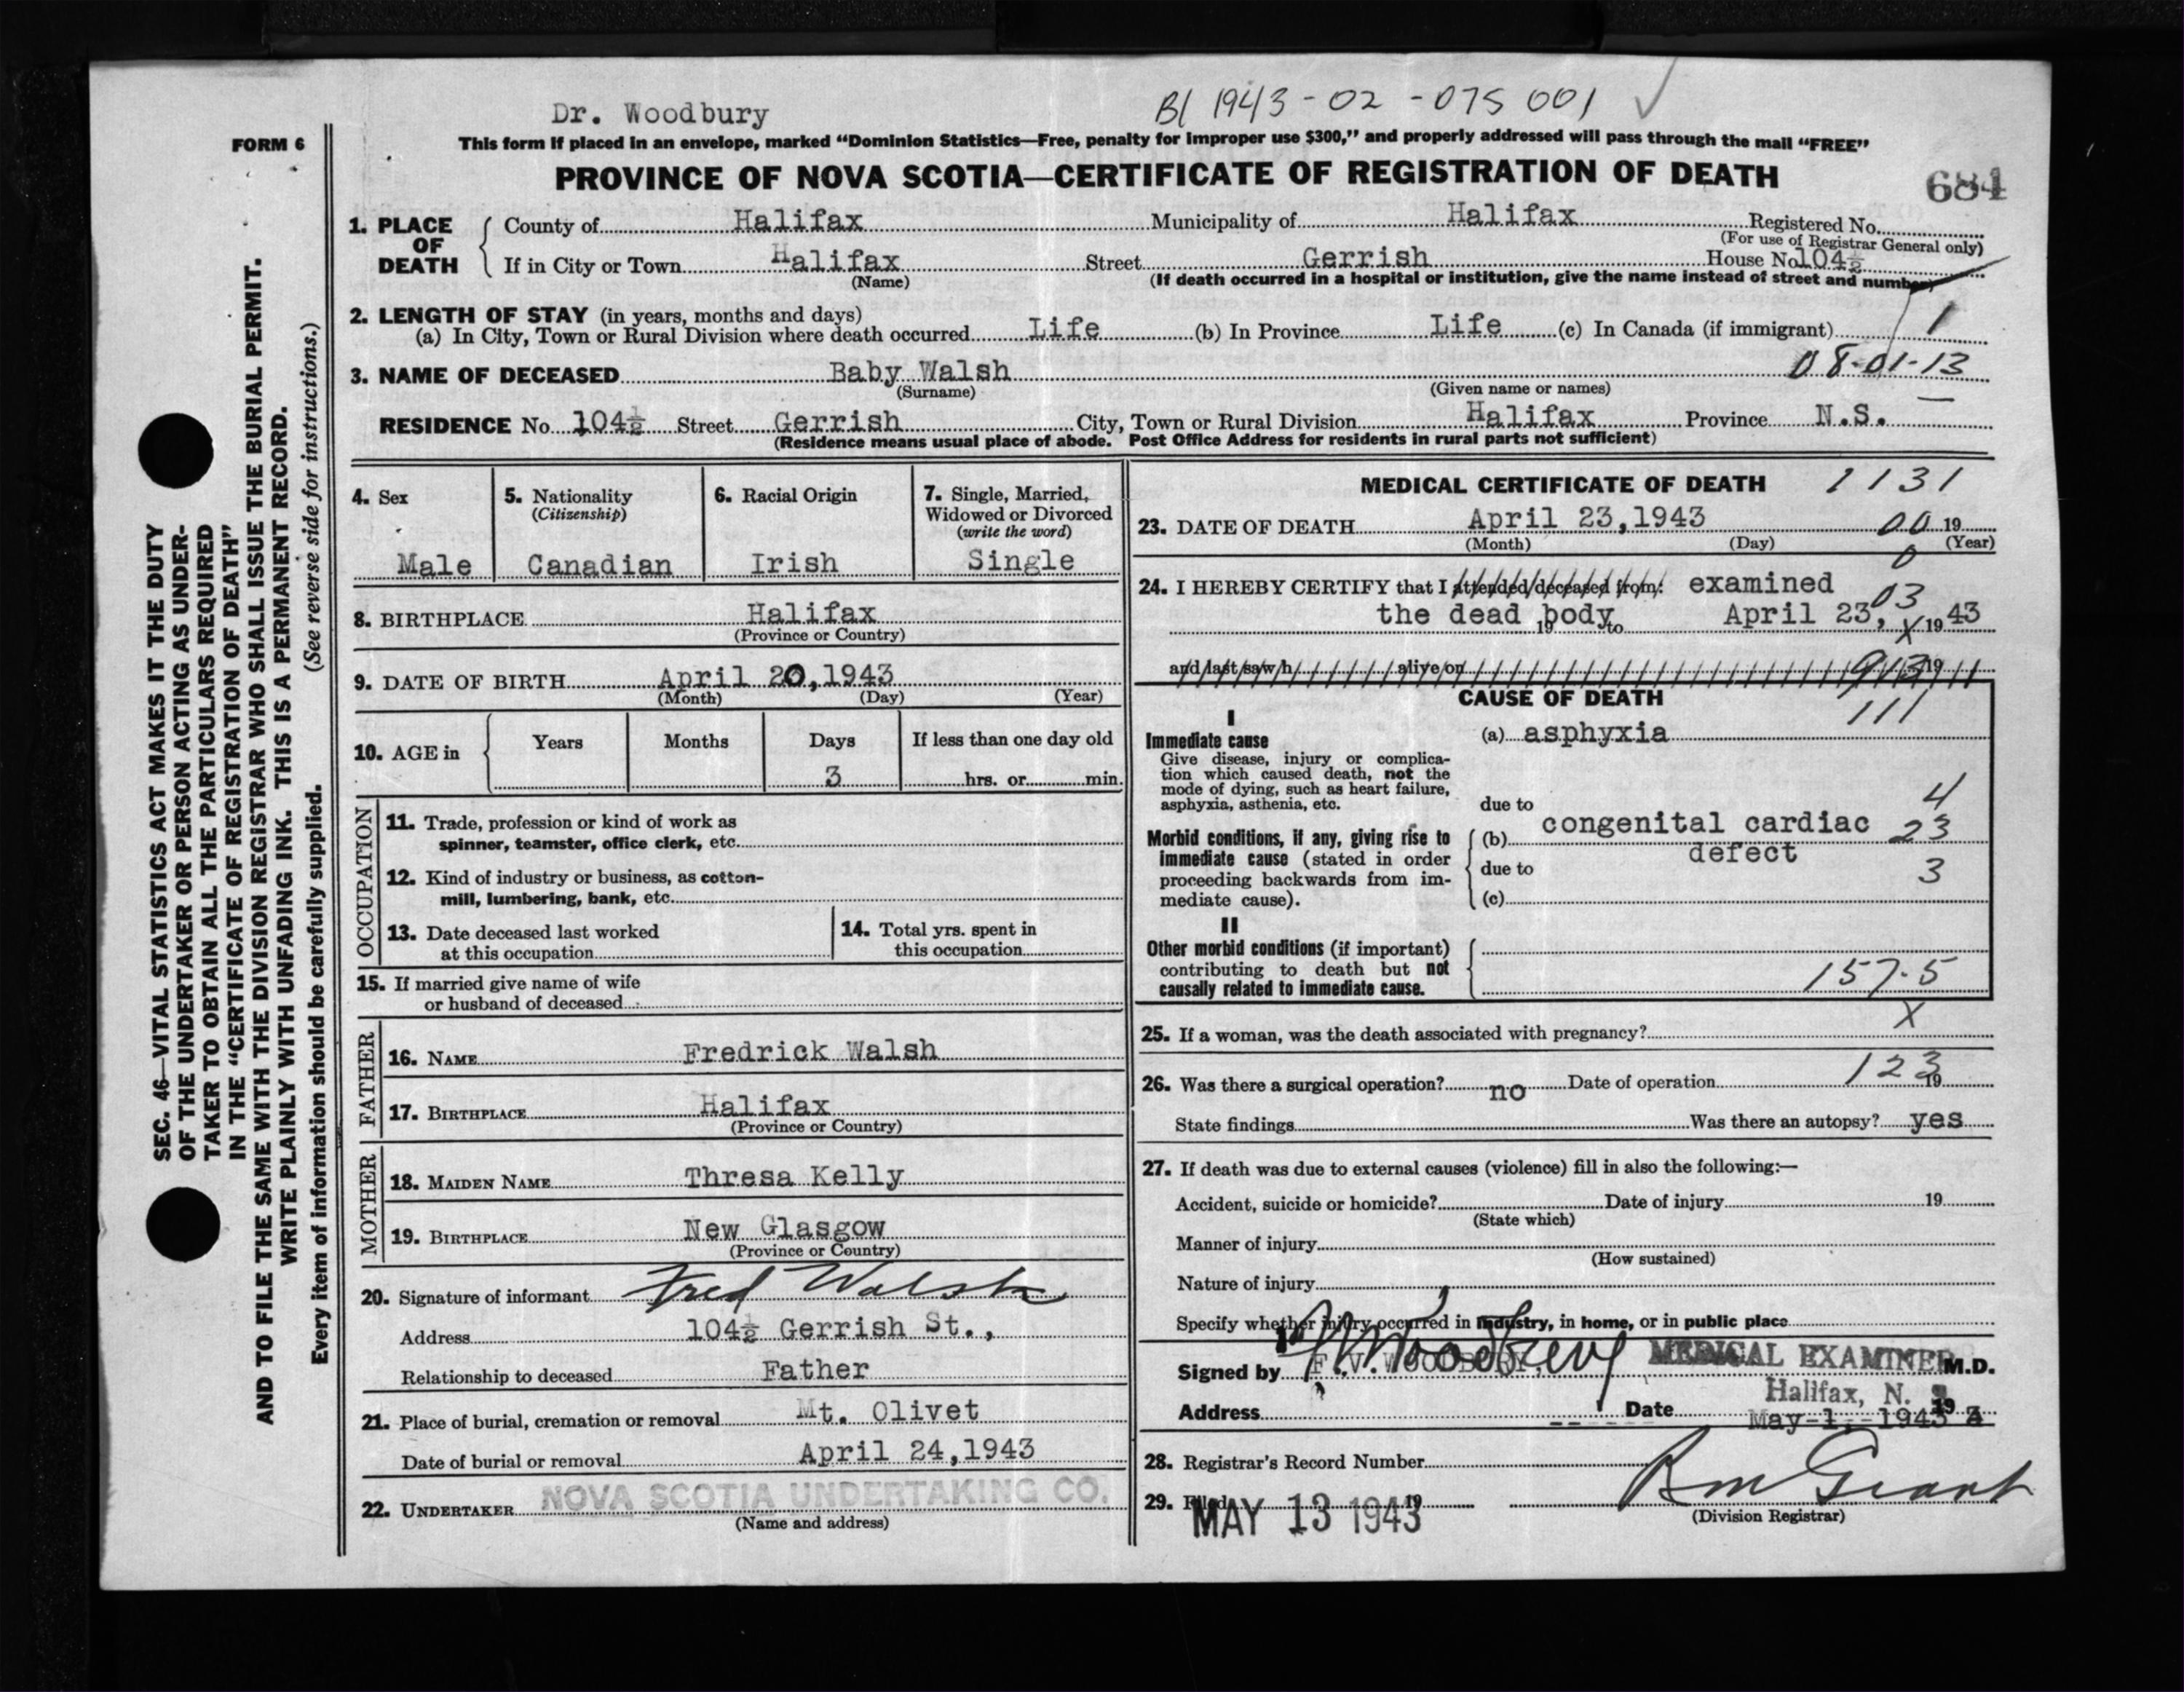 Dr. Woodbury
B/ 1943-02-075001 ✓
FORM 6
This form if placed in an envelope, marked “Dominion Statistics—Free, penalty for improper use $300,” and properly addressed will pass through the mail “FREE”
PROVINCE OF NOVA SCOTIA—CERTIFICATE OF REGISTRATION OF DEATH
684
1. PLACE OF DEATH
County of Halifax Municipality of Halifax Registered No.
(For use of Registrar General only)
If in City or Town Halifax Street Gerrish House No 104½
(Name) (If death occurred in a hospital or institution, give the name instead of street and number)
2. LENGTH OF STAY (in years, months and days)
(a) In City, Town or Rural Division where death occurred Life (b) In Province Life (c) In Canada (if immigrant) 1
3. NAME OF DECEASED Baby Walsh 08-01-13
(Surname) (Given name or names)
RESIDENCE No 104½ Street Gerrish City, Town or Rural Division Halifax Province N.S.
(Residence means usual place of abode. Post Office Address for residents in rural parts not sufficient)
4. Sex
Male
5. Nationality
(Citizenship)
Canadian
6. Racial Origin
Irish
7. Single, Married,
Widowed or Divorced
(write the word)
Single
8. BIRTHPLACE Halifax
(Province or Country)
9. DATE OF BIRTH April 20, 1943
(Month) (Day) (Year)
10. AGE in Years Months Days If less than one day old
3 hrs. or min.
OCCUPATION
11. Trade, profession or kind of work as
spinner, teamster, office clerk, etc.
12. Kind of industry or business, as cotton-
mill, lumbering, bank, etc.
13. Date deceased last worked
at this occupation
14. Total yrs. spent in
this occupation
15. If married give name of wife
or husband of deceased
FATHER
16. NAME Fredrick Walsh
17. BIRTHPLACE Halifax
(Province or Country)
MOTHER
18. MAIDEN NAME Thresa Kelly
19. BIRTHPLACE New Glasgow
(Province or Country)
20. Signature of informant Fred Walsh
Address 104½ Gerrish St.,
Relationship to deceased Father
21. Place of burial, cremation or removal Mt. Olivet
Date of burial or removal April 24, 1943
22. UNDERTAKER NOVA SCOTIA UNDERTAKING CO.
(Name and address)
MEDICAL CERTIFICATE OF DEATH 1131
23. DATE OF DEATH April 23, 1943 00 19
(Month) (Day) (Year)
0
24. I HEREBY CERTIFY that I attended deceased from: examined
03
the dead body 19 to April 23, X 19 43
and last saw h alive on 913 19
CAUSE OF DEATH
111
I
Immediate cause
Give disease, injury or complica-
tion which caused death, not the
mode of dying, such as heart failure,
asphyxia, asthenia, etc.
(a) asphyxia
due to 4
Morbid conditions, if any, giving rise to
immediate cause (stated in order
proceeding backwards from im-
mediate cause).
(b) congenital cardiac 23
defect
due to 3
(c)
II
Other morbid conditions (if important)
contributing to death but not
causally related to immediate cause.
157.5
25. If a woman, was the death associated with pregnancy? X
26. Was there a surgical operation? no Date of operation 123 19
State findings Was there an autopsy? yes
27. If death was due to external causes (violence) fill in also the following:—
Accident, suicide or homicide? Date of injury 19
(State which)
Manner of injury
(How sustained)
Nature of injury
Specify whether injury occurred in industry, in home, or in public place
Signed by F. V. WOODBURY MEDICAL EXAMINER M.D.
Halifax, N.
Address Date May-1,-1943
28. Registrar's Record Number
29. Filed MAY 13 1943 19 Grant
(Division Registrar)
SEC. 46—VITAL STATISTICS ACT MAKES IT THE DUTY
OF THE UNDERTAKER OR PERSON ACTING AS UNDER-
TAKER TO OBTAIN ALL THE PARTICULARS REQUIRED
IN THE “CERTIFICATE OF REGISTRATION OF DEATH”
AND TO FILE THE SAME WITH THE DIVISION REGISTRAR WHO SHALL ISSUE THE BURIAL PERMIT.
WRITE PLAINLY WITH UNFADING INK. THIS IS A PERMANENT RECORD.
Every item of information should be carefully supplied. (See reverse side for instructions.)